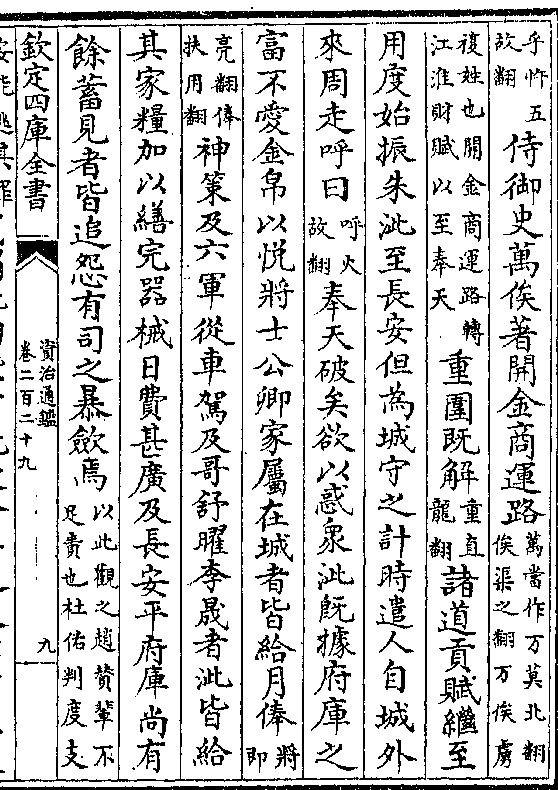 乎忤五故翻侍御史萬俟著開金商運路萬當作万莫北翻俟渠之翻万俟虜
複姓也開金商運路轉江淮財賦以至奉天重圍既解重直龍翻諸道貢賦繼至
用度始振朱泚至長安但為城守之計時遣人自城外
來周走呼曰呼火故翻奉天破矣欲以惑衆泚既據府庫之
富不愛金帛以悅將士公卿家屬在城者皆給月俸將即
亮翻俸扶用翻神策及六軍從車駕及哥舒曜李晟者泚皆給
其家糧加以繕完器械日費甚廣及長安平府庫尚有
餘蓄見者皆追怨有司之暴斂焉以此觀之趙贊輩不足責也杜佑判度支
欽定四庫全書
資治通鑑
卷二百二十九
九